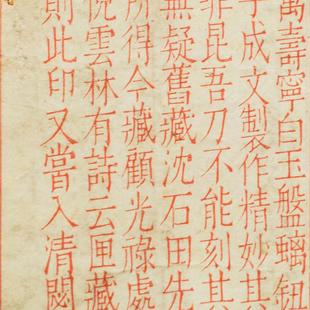 萬壽寧白玉盤螭鈕
字成文製作精妙其
非昆吾刀不能刻其
無疑舊藏沈石田先
所得今藏顧光祿處
倪雲林有詩云匣藏
則此印又嘗入清閟